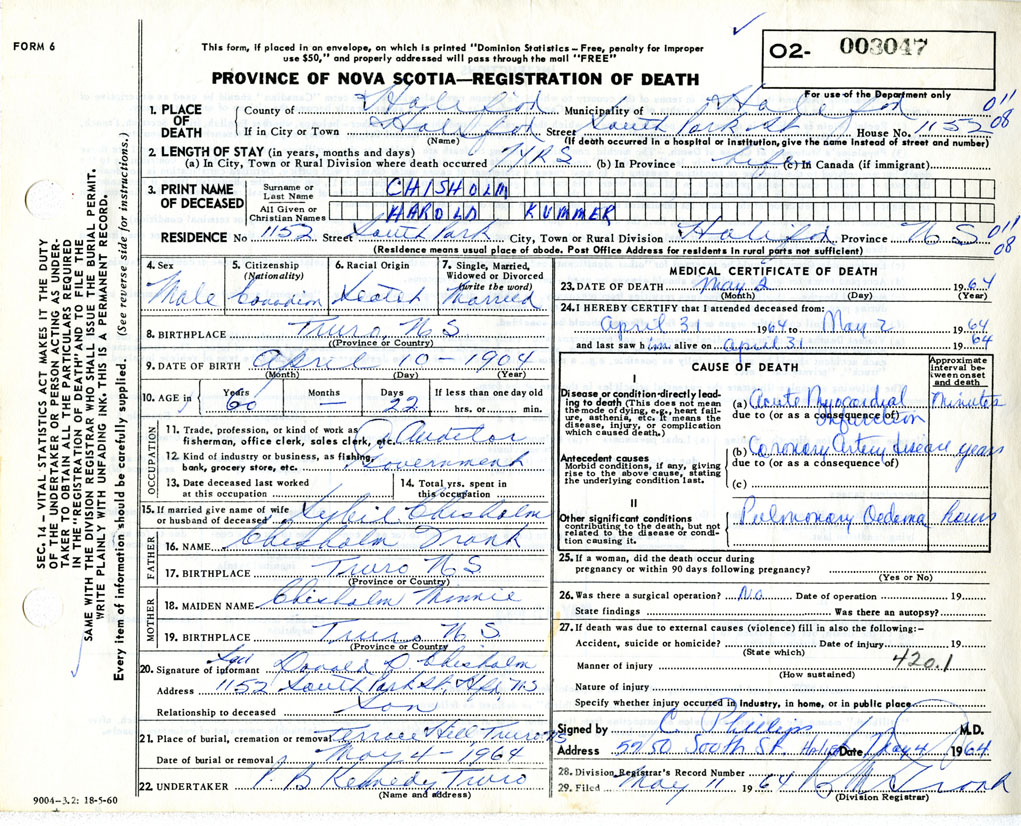 FORM 6
This form, if placed in an envelope, on which is printed "Dominion Statistics – Free, penalty for improper
use $50," and properly addressed will pass through the mail "FREE"
PROVINCE OF NOVA SCOTIA—REGISTRATION OF DEATH
O2- 003047
For use of the Department only
011
08
1. PLACE OF DEATH County of Halifax Municipality of Halifax
If in City or Town Halifax Street South Park St House No. 1152
(Name) (If death occurred in a hospital or institution, give the name instead of street and number)
2. LENGTH OF STAY (in years, months and days)
(a) In City, Town or Rural Division where death occurred 7 YRS (b) In Province life (c) In Canada (if immigrant)
3. PRINT NAME OF DECEASED Surname or Last Name CHISHOLM
All Given or Christian Names HAROLD KUMMER
RESIDENCE No 1152 Street South Park City, Town or Rural Division Halifax Province N S
011
08
(Residence means usual place of abode. Post Office Address for residents in rural parts not sufficient)
4. Sex Male
5. Citizenship (Nationality) Canadian
6. Racial Origin Scotch
7. Single, Married, Widowed or Divorced (write the word) Married
8. BIRTHPLACE Truro, N.S
(Province or Country)
9. DATE OF BIRTH April 10 - 1904
(Month) (Day) (Year)
10. AGE in Years 60 Months — Days 22 If less than one day old hrs. or min.
OCCUPATION
11. Trade, profession, or kind of work as
fisherman, office clerk, sales clerk, etc. Auditor
12. Kind of industry or business, as fishing,
bank, grocery store, etc. Government
13. Date deceased last worked
at this occupation
14. Total yrs. spent in
this occupation
15. If married give name of wife
or husband of deceased Sybil Chisholm
FATHER
16. NAME Chisholm Frank
17. BIRTHPLACE Truro N.S
(Province or Country)
MOTHER
18. MAIDEN NAME Chisholm Minnie
19. BIRTHPLACE Truro N S
(Province or Country)
20. Signature of informant Donald D. Chisholm
Address 1152 South Park St, Hfx, N.S
Relationship to deceased Son
21. Place of burial, cremation or removal Terrace Hill Truro NS
Date of burial or removal May 4 - 1964
22. UNDERTAKER P B Kennedy, Truro
(Name and address)
9004–3.2: 18-5-60
MEDICAL CERTIFICATE OF DEATH
23. DATE OF DEATH May 2 1964
(Month) (Day) (Year)
24. I HEREBY CERTIFY that I attended deceased from:
April 31 1964 to May 2 1964
and last saw him alive on April 31 1964
CAUSE OF DEATH
Approximate interval between onset and death
I
Disease or condition directly leading to death (This does not mean the mode of dying, e.g., heart failure, asthenia, etc. It means the disease, injury, or complication which caused death.)
(a) Acute Myocardial Infarction Minutes
due to (or as a consequence of)
Antecedent causes
Morbid conditions, if any, giving rise to the above cause, stating the underlying condition last.
(b) Coronary Artery disease years
due to (or as a consequence of)
(c)
II
Other significant conditions
contributing to the death, but not related to the disease or condition causing it.
Pulmonary Oedema hours
25. If a woman, did the death occur during
pregnancy or within 90 days following pregnancy?
(Yes or No)
26. Was there a surgical operation? No Date of operation 19
State findings Was there an autopsy?
27. If death was due to external causes (violence) fill in also the following:–
Accident, suicide or homicide? Date of injury 19
(State which)
420.1
Manner of injury
(How sustained)
Nature of injury
Specify whether injury occurred in industry, in home, or in public place
Signed by C Phillips M.D.
Address 5250 South St. Halifax Date May 4 1964
28. Division Registrar's Record Number
29. Filed May 11 1964
(Division Registrar)
SEC. 14 – VITAL STATISTICS ACT MAKES IT THE DUTY
OF THE UNDERTAKER OR PERSON ACTING AS UNDER-
TAKER TO OBTAIN ALL THE PARTICULARS REQUIRED
IN THE "REGISTRATION OF DEATH" AND TO FILE THE
SAME WITH THE DIVISION REGISTRAR WHO SHALL ISSUE THE BURIAL PERMIT.
WRITE PLAINLY WITH UNFADING INK. THIS IS A PERMANENT RECORD.
Every item of information should be carefully supplied. (See reverse side for instructions.)